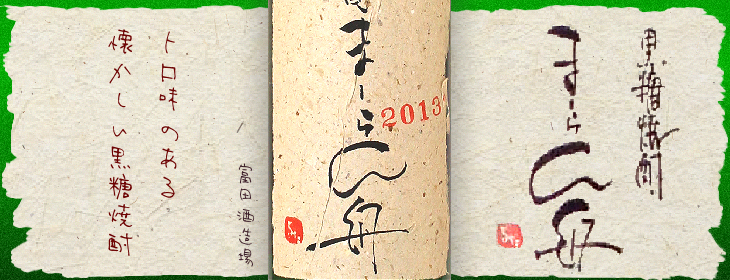 トロ味のある
懐かしい黒糖焼酎
富田酒造場
まーらん舟
2013
黒糖焼酎
まーらん舟